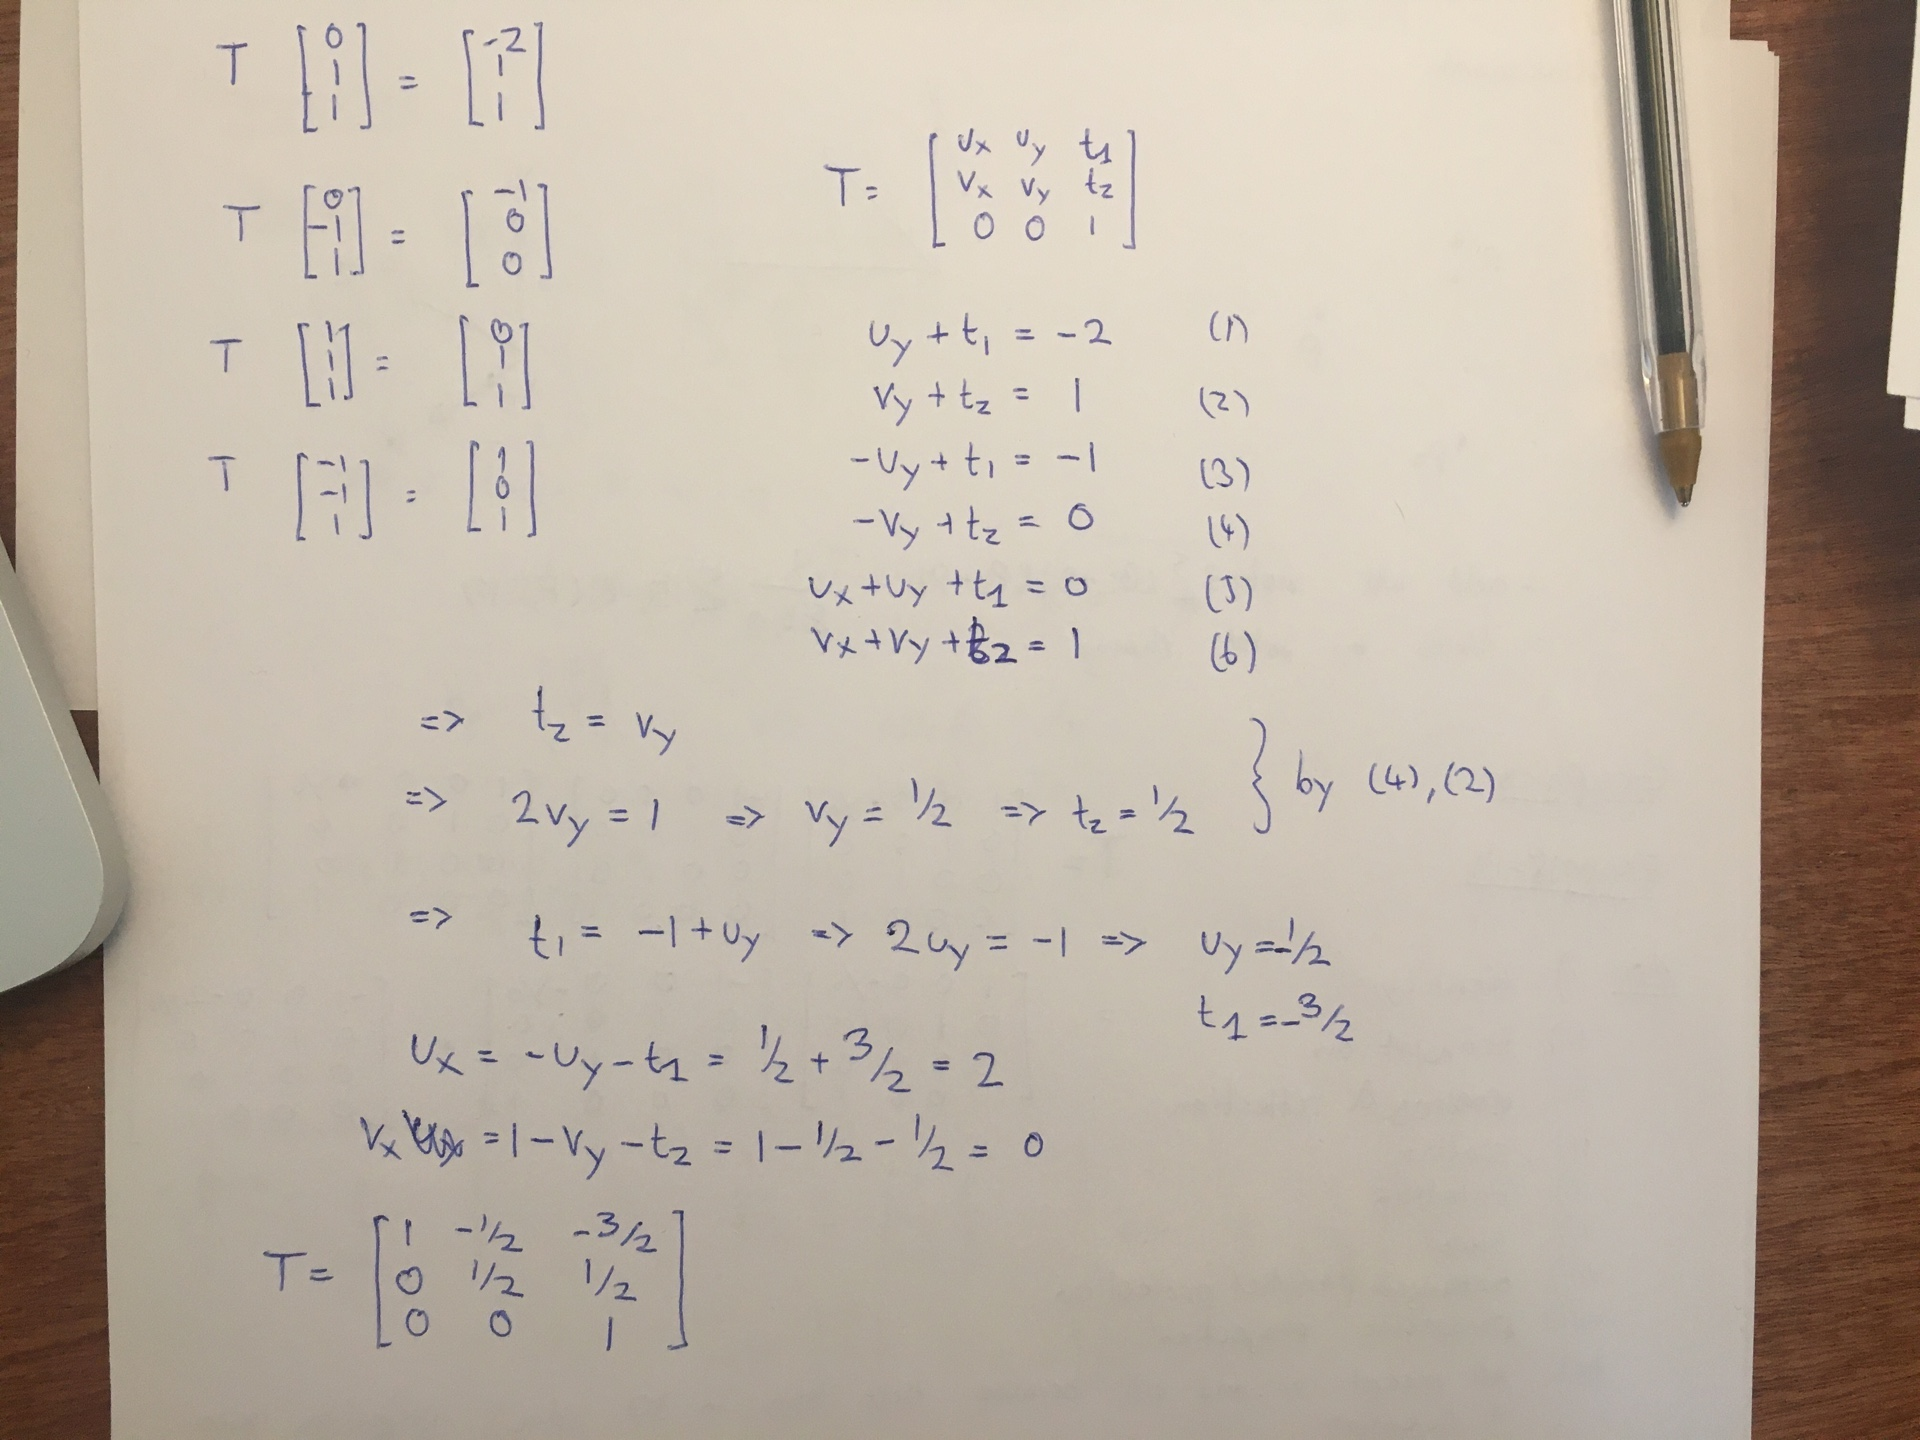 T [0 1 1] = [-2 1 1]
T [0 -1 1] = [-1 0 0]
T [1 1 1] = [0 1 1]
T [-1 -1 1] = [1 0 1]
T= [Ux Uy t1
Vx Vy t2
0 0 1]
Uy + t1 = -2 (1)
Vy + t2 = 1 (2)
-Uy + t1 = -1 (3)
-Vy + t2 = 0 (4)
Ux + Uy + t1 = 0 (5)
Vx + Vy + t2 = 1 (6)
=> t2 = Vy
=> 2Vy = 1 => Vy = 1/2 => t2 = 1/2 } by (4), (2)
=> t1 = -1 + Uy => 2Uy = -1 => Uy = -1/2
t1 = -3/2
Ux = -Uy - t1 = 1/2 + 3/2 = 2
Vx = 1 - Vy - t2 = 1 - 1/2 - 1/2 = 0
T= [1 -1/2 -3/2
0 1/2 1/2
0 0 1]